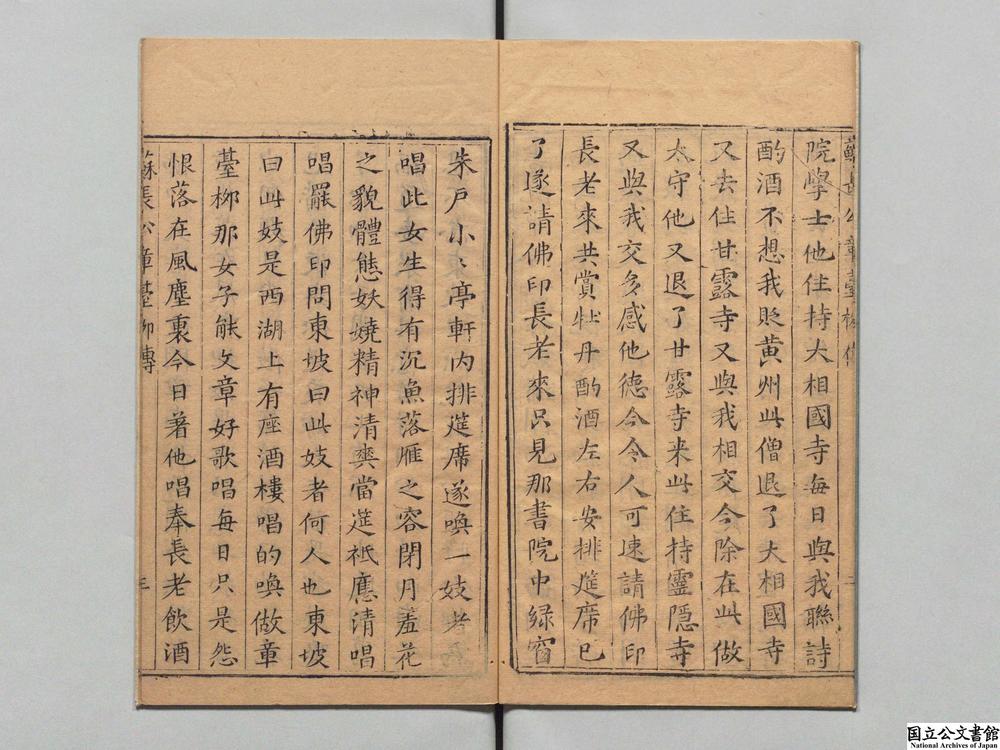 蘇長公章臺柳傳
院學士他住持大相國寺每日與我聯詩
酌酒不想我貶黄州此僧退了大相國寺
又去住甘露寺又與我相交今除在此做
太守他又退了甘露寺来此住持靈隱寺
又與我交多感他德今令人可速請佛印
長老來共賞牡丹酌酒左右安排筵席已
了遂請佛印長老來只見那書院中緑窗
朱戸小小亭軒内排筵席遂喚一妓者
唱此女生得有沉魚落雁之容閉月羞花
之貌體態妖嬈精神清爽當筵祇應清唱
唱罷佛印問東坡曰此妓者何人也東坡
曰此妓是西湖上有座酒樓唱的喚做章
臺柳那女子能文章好歌唱每日只是怨
恨落在風塵裏今日著他唱奉長老飲酒
蘇長公章臺柳傳
三
国立公文書館
National Archives of Japan